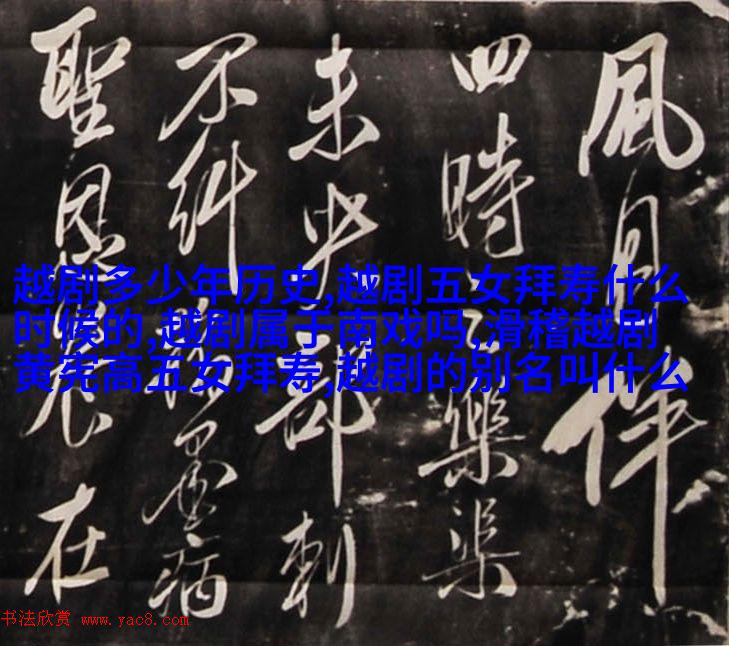 風月伴
四時樂渠
未央部刺
不糾墨病
聖恩在
越剧多少年历史,越剧五女拜寿什么
时候的,越剧属于南戏吗,滑稽越剧
黄宪高五女拜寿,越剧的别名叫什么
书法欣赏 www.yac8.com